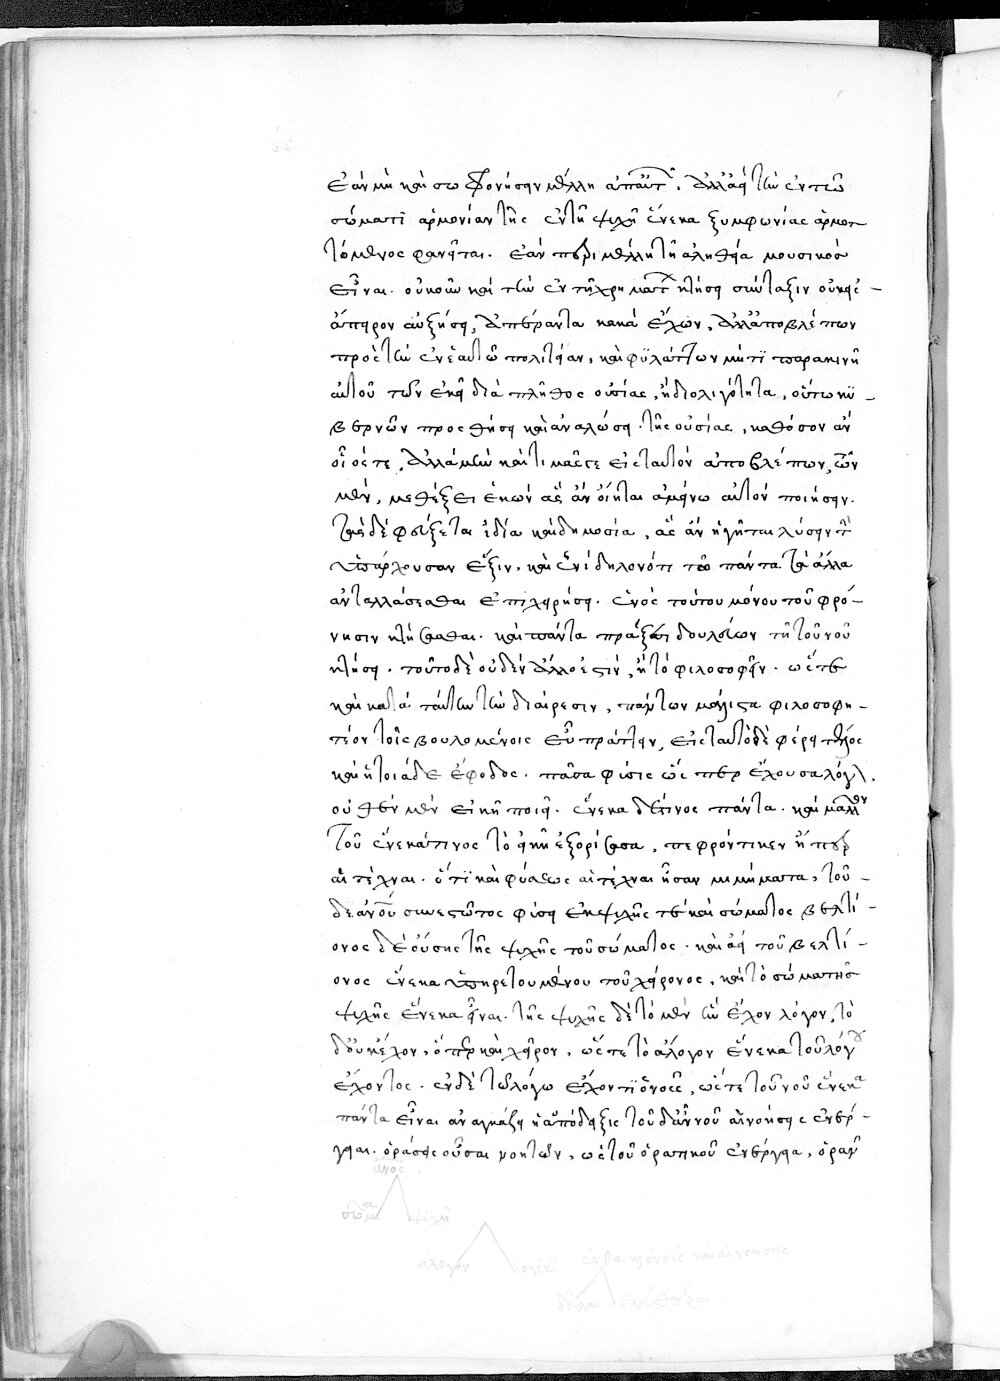 ἐὰν μὴ καὶ σωφρονήσειν μέλλη ἀπ' αὐτῶν. ἀλλ' ἀεὶ τὴν ἐν τῶ
σώματι ἁρμονίαν τῆς ἐν τῆ ψυχῆ ἕνεκα ξυμφωνίας ἁρμοτ
τόμενος φανεῖται. ἐάν περ μέλλη τῆ ἀληθεία μουσικὸς
εἶναι. οὐκοῦν καὶ τὴν ἐν τῆ χρημάτων κτήσει σύνταξιν οὐκ εἰς
ἄπειρον αὐξήσει, ἀπέραντα κακὰ ἔχων, ἀλλ' ἀποβλέπων
πρὸς τὴν ἐν ἑαυτῶ πολιτείαν, καὶ φυλάττων μή τι παρακινῆ
αὑτοῦ τῶν ἐκεῖ διὰ πλῆθος οὐσίας, ἢ δι' ὀλιγότητα, οὕτω κυ-
βερνῶν προσθήσει καὶ ἀναλώσει τῆς οὐσίας, καθόσον ἂν
οἷός τε, ἀλλὰ μὴν καὶ τιμὰς γε εἰς ταυτὸν ἀποβλέπων, τῶν
μὲν, μεθέξει ἑκὼν ἃς ἂν οἴηται ἀμείνω αὑτὸν ποιήσειν.
τὰς δὲ φεύξεται ἰδία καὶ δημοσία, ἃς ἂν ἡγῆται λύσειν τὴν
ὑπάρχουσαν ἕξιν. καὶ ἑνὶ δηλονότι τῶ πάντα τὰ ἄλλα
ἀνταλλάσεσθαι ἐπιχειρήσει. ἑνὸς τούτου μόνου τοῦ φρό-
νησιν κτήσασθαι. καὶ πάντα πράξει δουλεύων τῆ τοῦ νοῦ
κτήσει. τοῦτο δὲ οὐδὲν ἄλλο ἐστὶν, ἢ τὸ φιλοσοφεῖν. ὥστε
καὶ κατὰ ταύτην τὴν διαίρεσιν, πάντων μάλιστα φιλοσοφη-
τέον τοῖς βουλομένοις εὖ πράττειν, εἰς ταυτὸ δὲ φέρει τέλος
καὶ ἡ τοιάδε ἔφοδος. πᾶσα φύσις ὥσπερ ἔχουσα λόγον.
οὐθὲν μὲν εἰκῆ ποιεῖ. ἕνεκα δέ τινος πάντα. καὶ μᾶλλον
τοῦ ἕνεκά τινος τὸ εἰκῆ ἐξορίσασα, πεφρόντικεν ἤπερ
αἱ τέχναι. ὅτι καὶ φύσεως αἱ τέχναι ἦσαν μιμήματα, τοῦ
δὲ ἀνου συνεστῶτος φύσει ἐκ ψυχῆς τε καὶ σώματος βελτί-
ονος δὲ οὔσης τῆς ψυχῆς τοῦ σώματος. καὶ ἀεὶ τοῦ βελτί-
ονος ἕνεκα ὑπηρετουμένου τοῦ χείρονος, καὶ τὸ σῶμα τῆς
ψυχῆς ἕνεκα εἶναι. τῆς ψυχῆς δὲ τὸ μὲν ἦν ἔχον λόγον, τὸ
δ' οὐκ ἔχον, ὅπερ καὶ χεῖρον, ὥστε τὸ ἄλογον ἕνεκα τοῦ λόγον
ἔχοντος. ἐν δὲ τῶ λόγω ἔχοντι ὁ νοῦς, ὥστε τοῦ νοῦ ἕνεκα
πάντα εἶναι ἀναγκάζει ἡ ἀπόδειξις τοῦ δ' αὖ νοῦ αἱ νοήσεις ἐνέρ-
γειαι. ὁράσεις οὖσαι νοητῶν, ὡς τοῦ ὁρατικοῦ ἐνέργεια, ὁρᾶν
ἀνος
σῶμα ψυχὴ
ἄλογον λογικὴ ἔνθα ὁ νοῦς καὶ αἱ νοήσεις